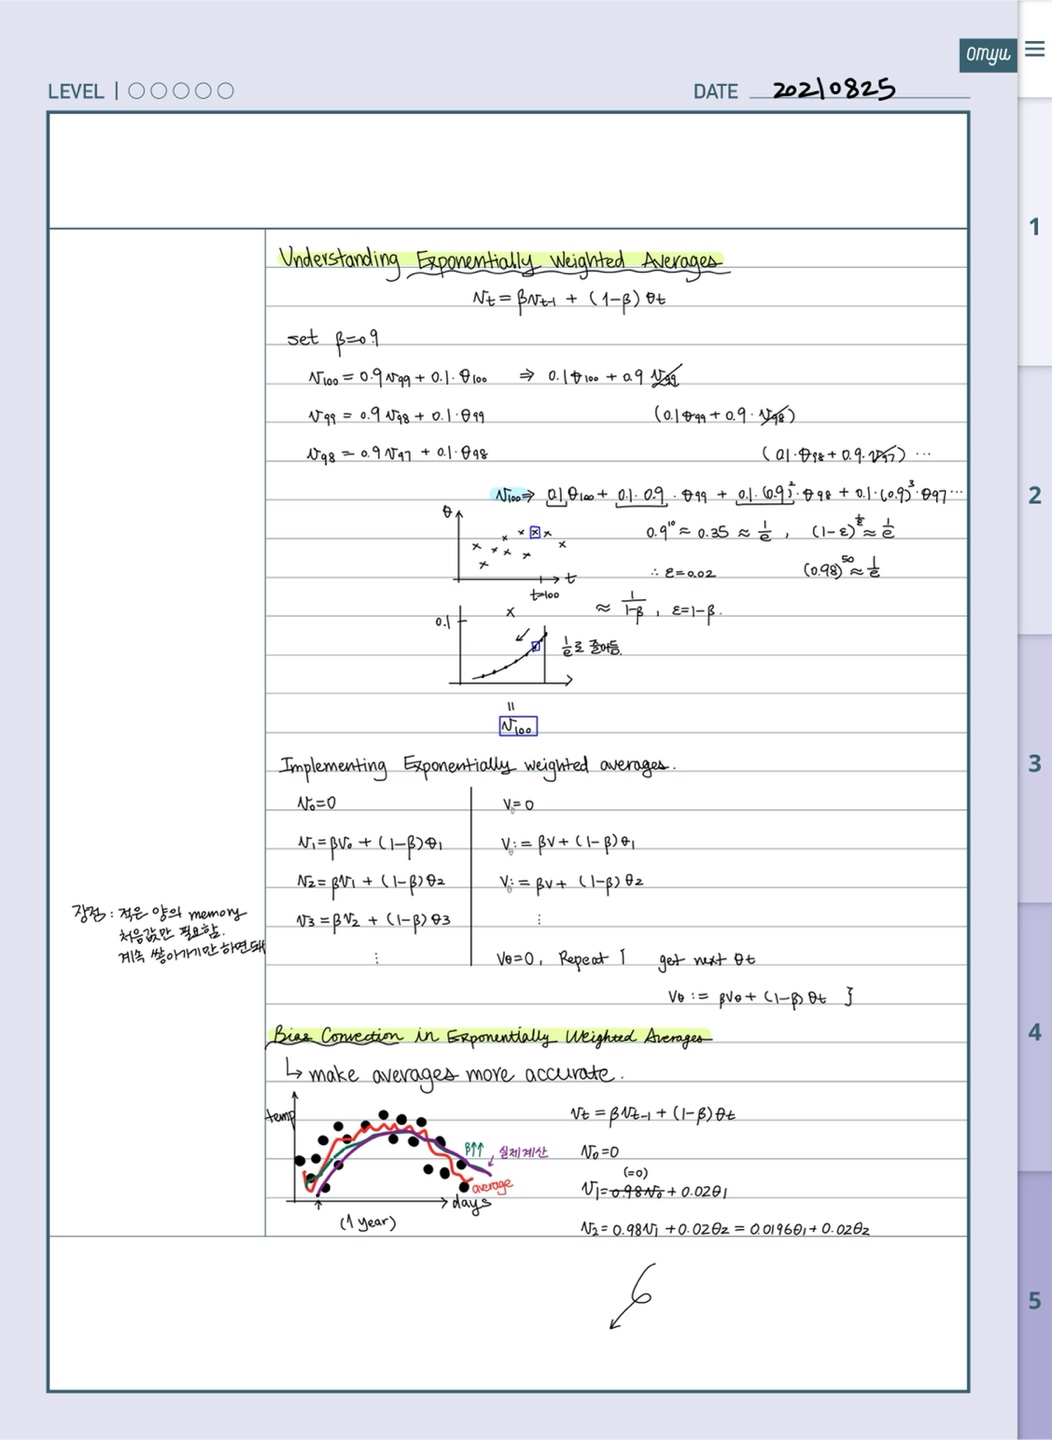 omyu
LEVEL | ○○○○○
DATE 20210825
1
2
3
4
5
Understanding Exponentially Weighted Averages
Vt = βVt-1 + (1-β) θt
set β=0.9
V100 = 0.9V99 + 0.1·θ100 ⇒ 0.1θ100 + 0.9 V99
V99 = 0.9 V98 + 0.1·θ99 (0.1θ99 + 0.9·V98)
V98 = 0.9 V97 + 0.1·θ98 (0.1·θ98 + 0.9·V97) ...
V100 ⇒ 0.1θ100 + 0.1·0.9·θ99 + 0.1·(0.9)²·θ98 + 0.1·(0.9)³·θ97...
θ
0.9¹⁰ ≈ 0.35 ≈ 1/e , (1-ε)^(1/ε) ≈ 1/e
∴ ε=0.02 (0.98)⁵⁰ ≈ 1/e
t
t=100
≈ 1/(1-β) , ε=1-β.
0.1
1/e로 줄어듬.
=
V100
Implementing Exponentially weighted averages.
V0=0
V1=βV0 + (1-β)θ1
V2=βV1 + (1-β)θ2
V3=βV2 + (1-β)θ3
⋮
Vθ=0
Vθ:= βV+(1-β)θ1
Vθ:= βV+ (1-β)θ2
⋮
Vθ=0, Repeat { get next θt
Vθ := βVθ+(1-β)θt }
장점: 적은 양의 memory
처음값만 필요함.
계속 쌓아가기만 하면돼
Bias Correction in Exponentially Weighted Averages
↳ make averages more accurate.
temp
β↑↑
실제계산
average
days
(1 year)
Vt = βVt-1 + (1-β)θt
V0=0
(=0)
V1=0.98V0 + 0.02θ1
V2= 0.98V1 + 0.02θ2 = 0.0196θ1 + 0.02θ2